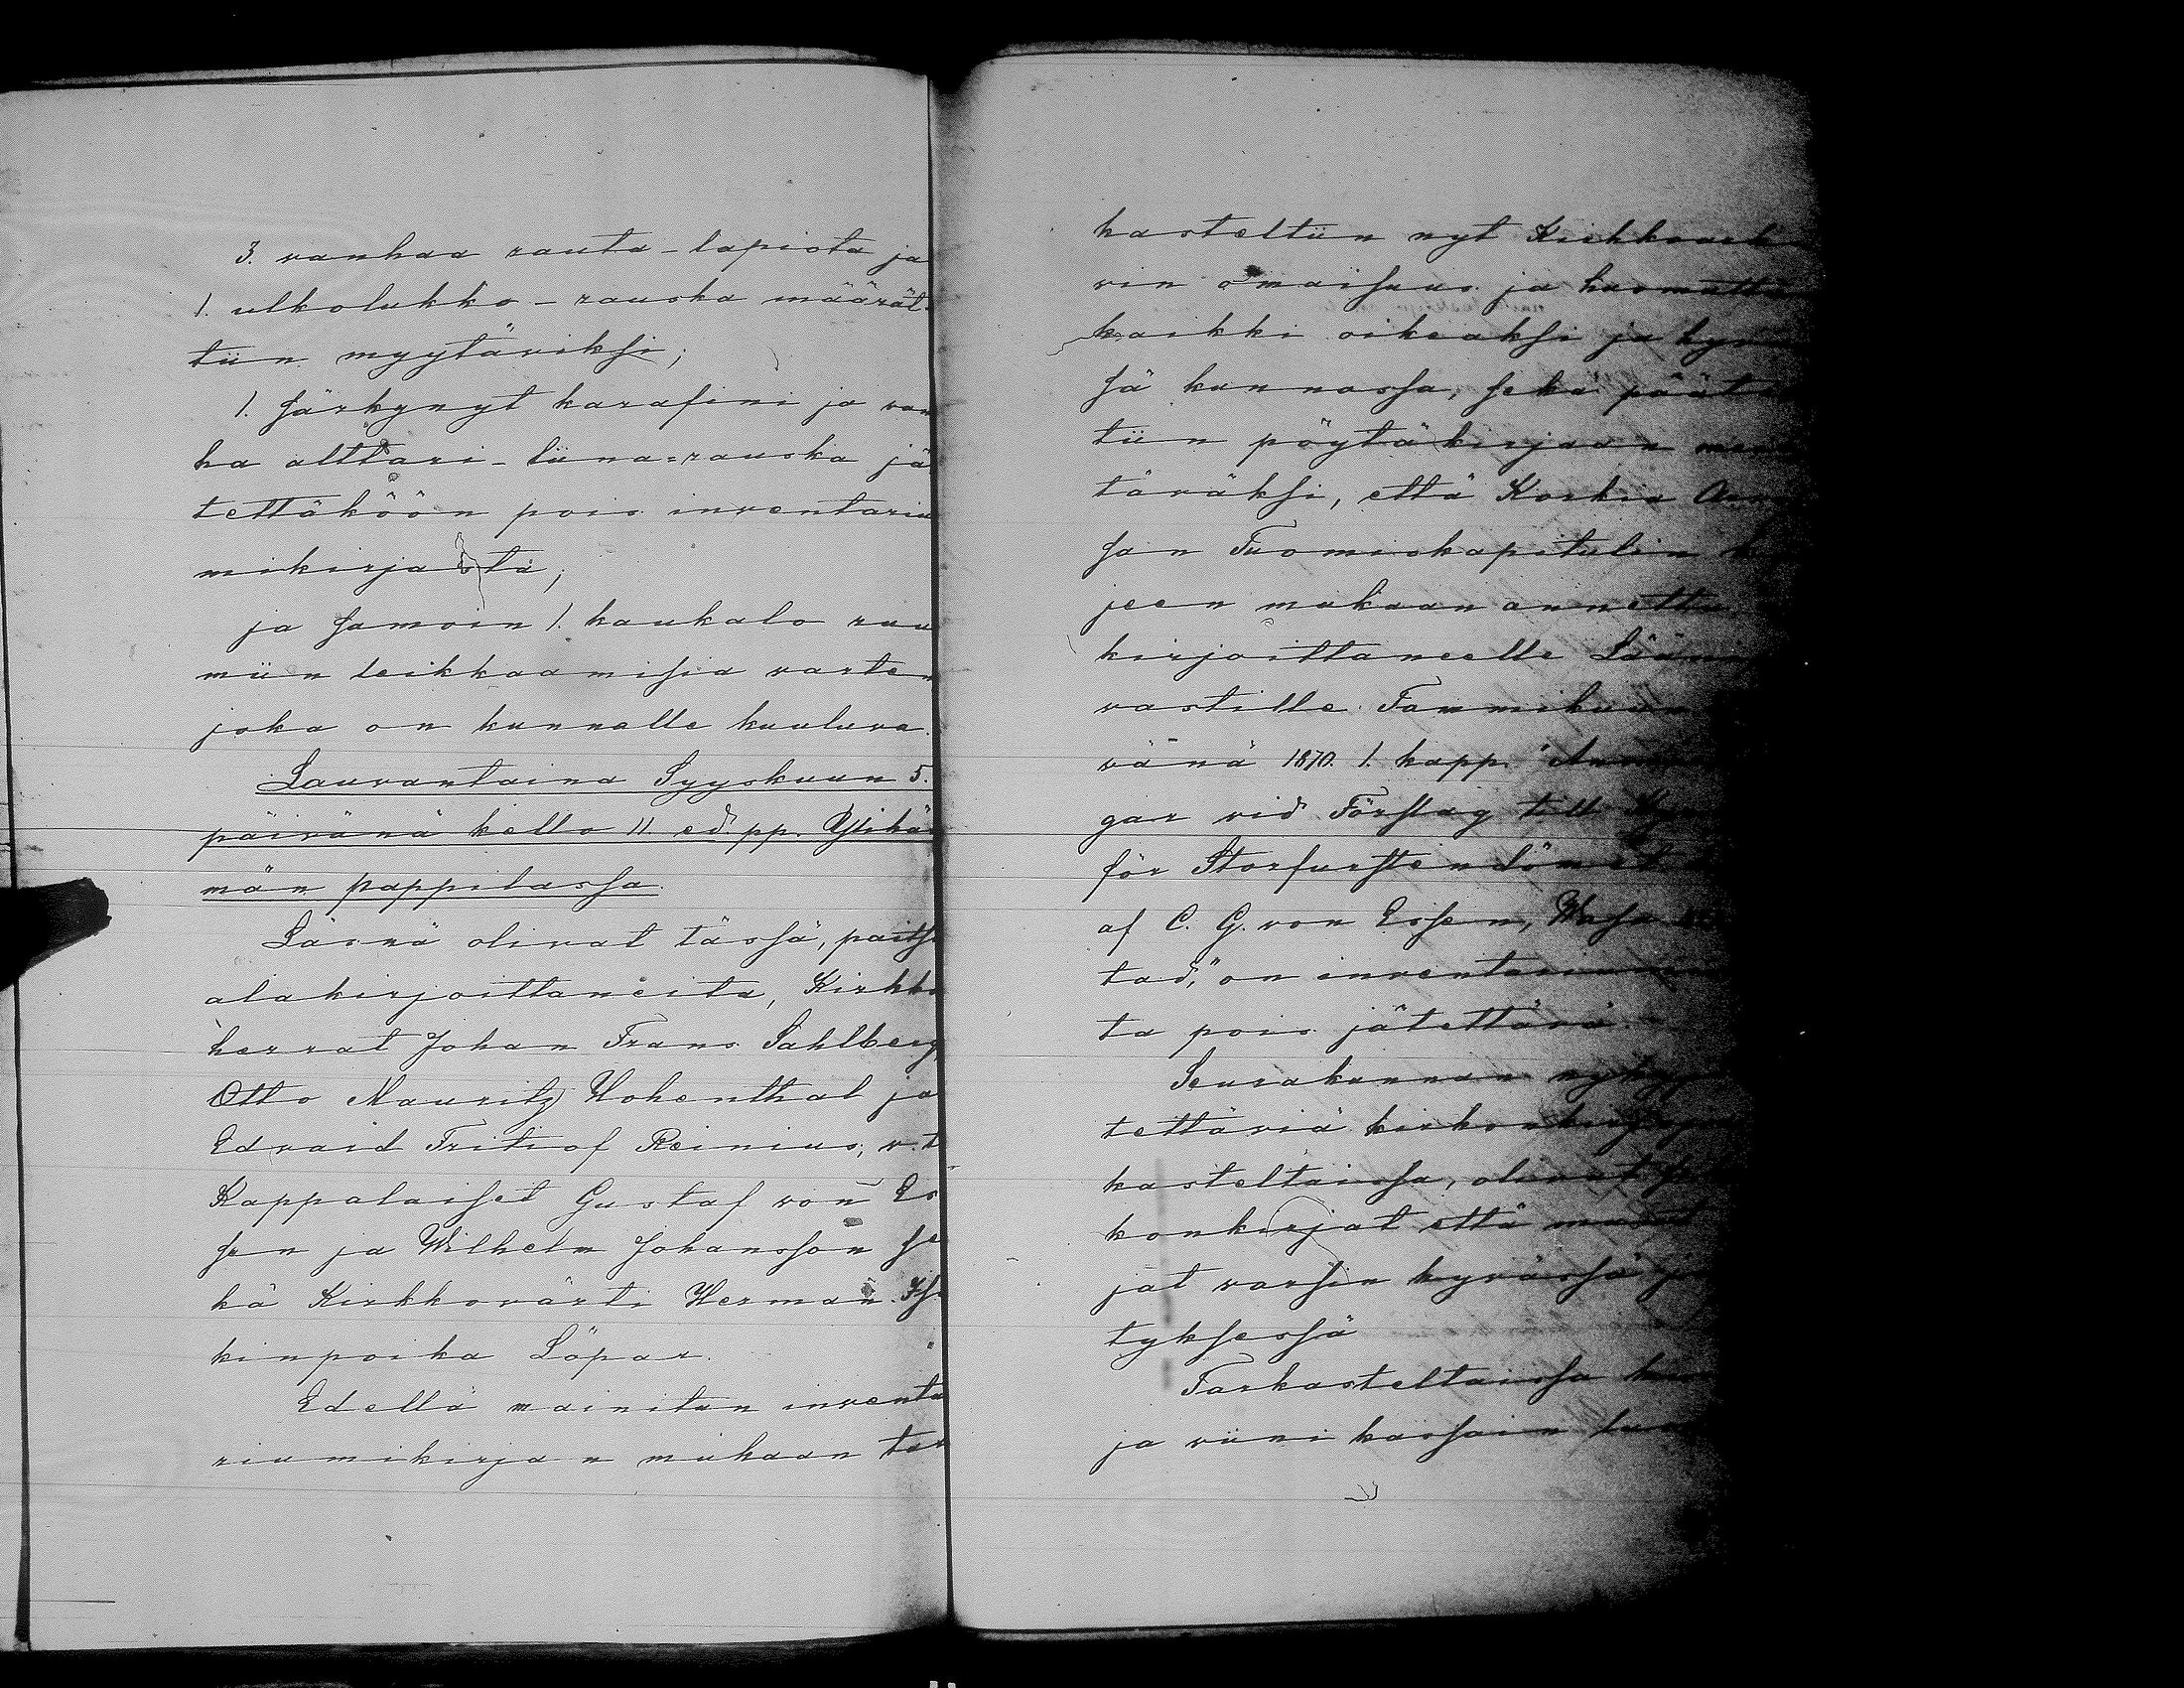 3. vanhaa rauta-lapiota ja
1. ulkolukko-rauska määrät-
tiin myytäviksi;
1. särkynyt karafini ja van
ha alttari-liina-rauska jä
tettäköön pois inventariu
mikirjasta;
ja samoin 1. kaukalo ruu
miin leikkaamisia varten
joka on kunnalle kuuluva.
Lauvantaina Syyskuun 5.
päivänä kello 11 ed. pp. Ylihär
män pappilassa.
Läsnä olivat tässä, paitsi
alakirjoittaneita, Kirkko
herrat Johan Frans Sahlberg
Otto Mauritz Hohenthal ja
Edvard Fritiof Reinius; v.t.
Kappalaiset Gustaf von Es
sen ja Wilhelm Johansson se
kä Kirkkovärti Herman Isa
kinpoika Löpar.
Edellä mainitun inventa
riumikirjan mukaan tar
kasteltiin nyt Kirkkoark
vin omaisuus ja huomattiin
kaikki oikeaksi ja hyväs
sä kunnossa, sekä päätet
tiin pöytäkirjaan
täväksi, että Korkia
san Tuomiokapitulin
jeen mukaan annettu
kirjoittaneelle Lääni
vastille Tammikuun
vänä 1870. 1. kapp. "Anmärknin
gar vid Förslag till
för Storfurstendömet
af C. G. von Essen, Wasa
tad," on inventarium
ta pois jätettävä.
Seurakunnan nykyään
tettäviä kirkonkirjoja
kasteltaissa, olivat
konkirjat että muut
jat varsin hyvässä jär
tyksessä
Tarkasteltaissa
ja viini kassain